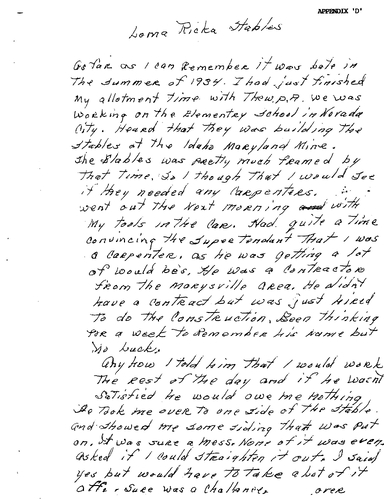 APPENDIX 'D'
Loma Ricka Stables
As far as I can Remember it was late in
The Summer of 1934. I had just finished
My allotment Time with The W.P.A. we was
working on the Elementry School in Nevada
City. Heard that they was building the
Stables at the Idaho Maryland Mine.
The Stables was pretty much framed by
that time. So I though that I would see
if they needed any Carpenters.
went out the Next morning with
My tools in the Car. Had quite a time
convincing the Super Tendant that I was
a Carpenter, as he was getting a lot
of would be's. He was a Contractor
from the Marysville area. He didnt
have a Contract but was just hired
to do the Construction. Been thinking
for a week to Remember his Name but
No Luck.
Any how I told him that I would work
The rest of the day and if he wasnt
Satisfied he would owe me Nothing
He Took me over to one side of the Stable
and showed me some siding that was put
on. It was sure a mess. None of it was even.
asked if I could straighten it out. I said
yes but would have to take a lot of it
off. Sure was a Challange. over